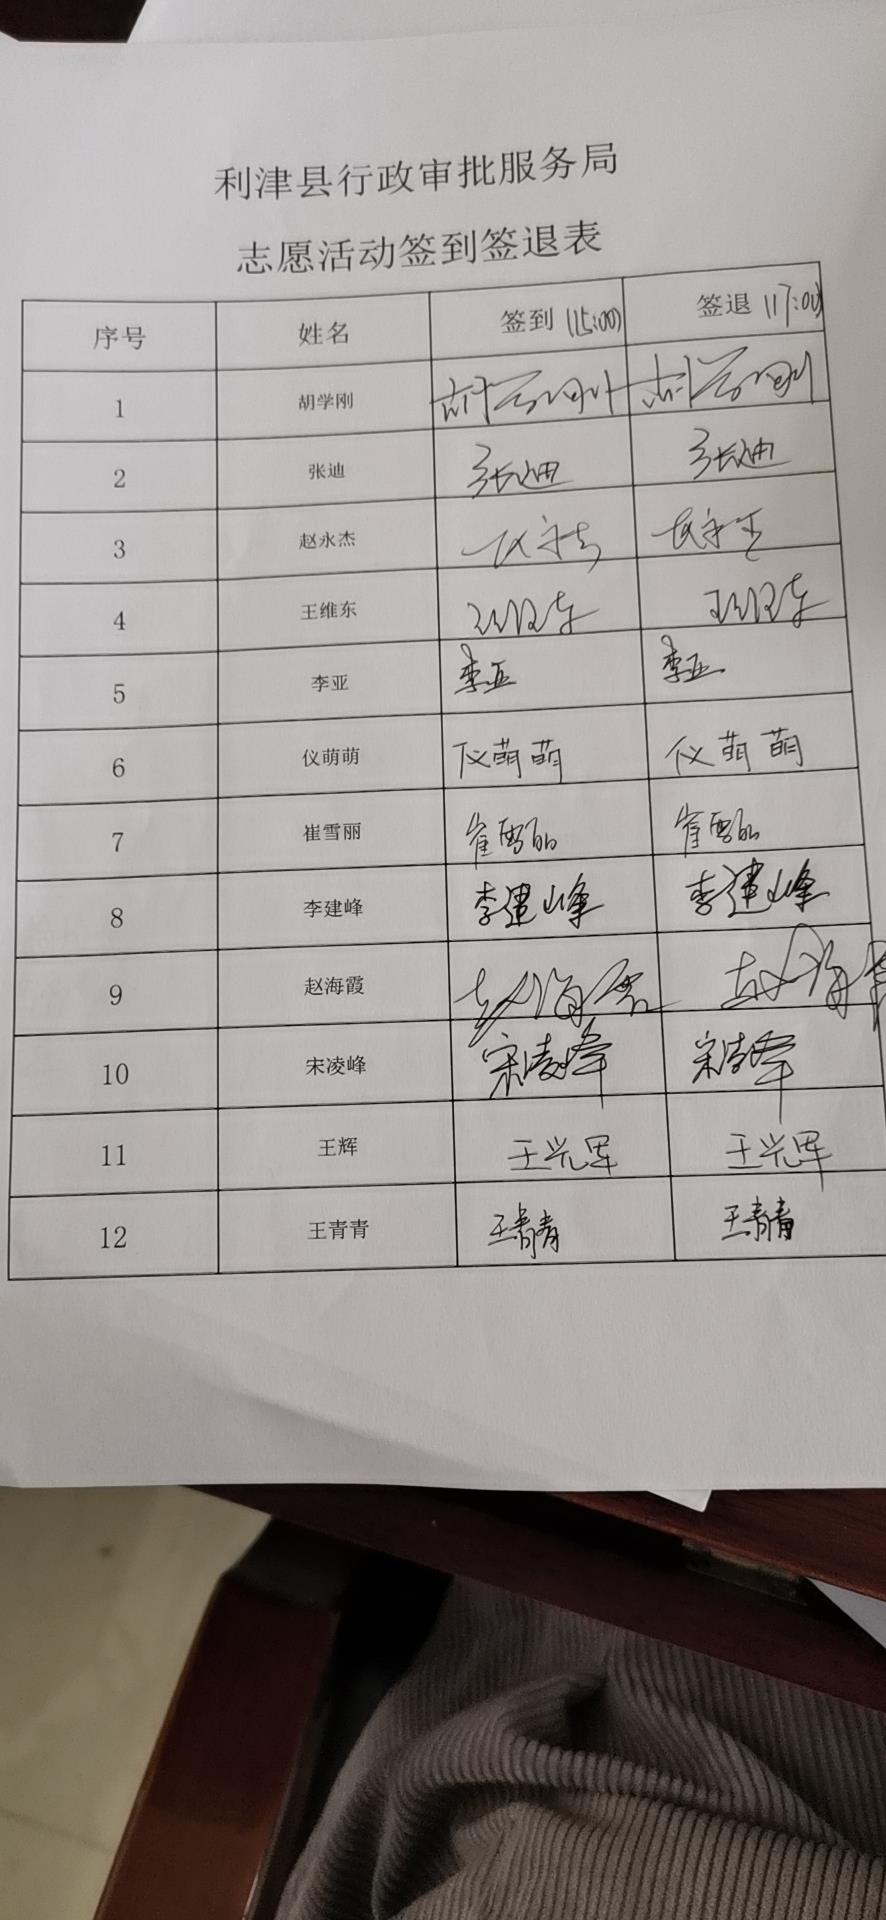 利津县行政审批服务局
志愿活动签到签退表
序号 姓名 签到 (15:00) 签退 (17:00)
1 胡学刚 胡学刚 胡学刚
2 张迪 张迪 张迪
3 赵永杰 赵永杰
4 王维东 王维东 王维东
5 李亚 李亚 李亚
6 仪萌萌 仪萌萌 仪萌萌
7 崔雪丽 崔雪丽 崔雪丽
8 李建峰 李建峰 李建峰
9 赵海霞 赵海霞 赵海霞
10 宋凌峰 宋凌峰 宋凌峰
11 王辉 王辉 王辉
12 王青青 王青青 王青青